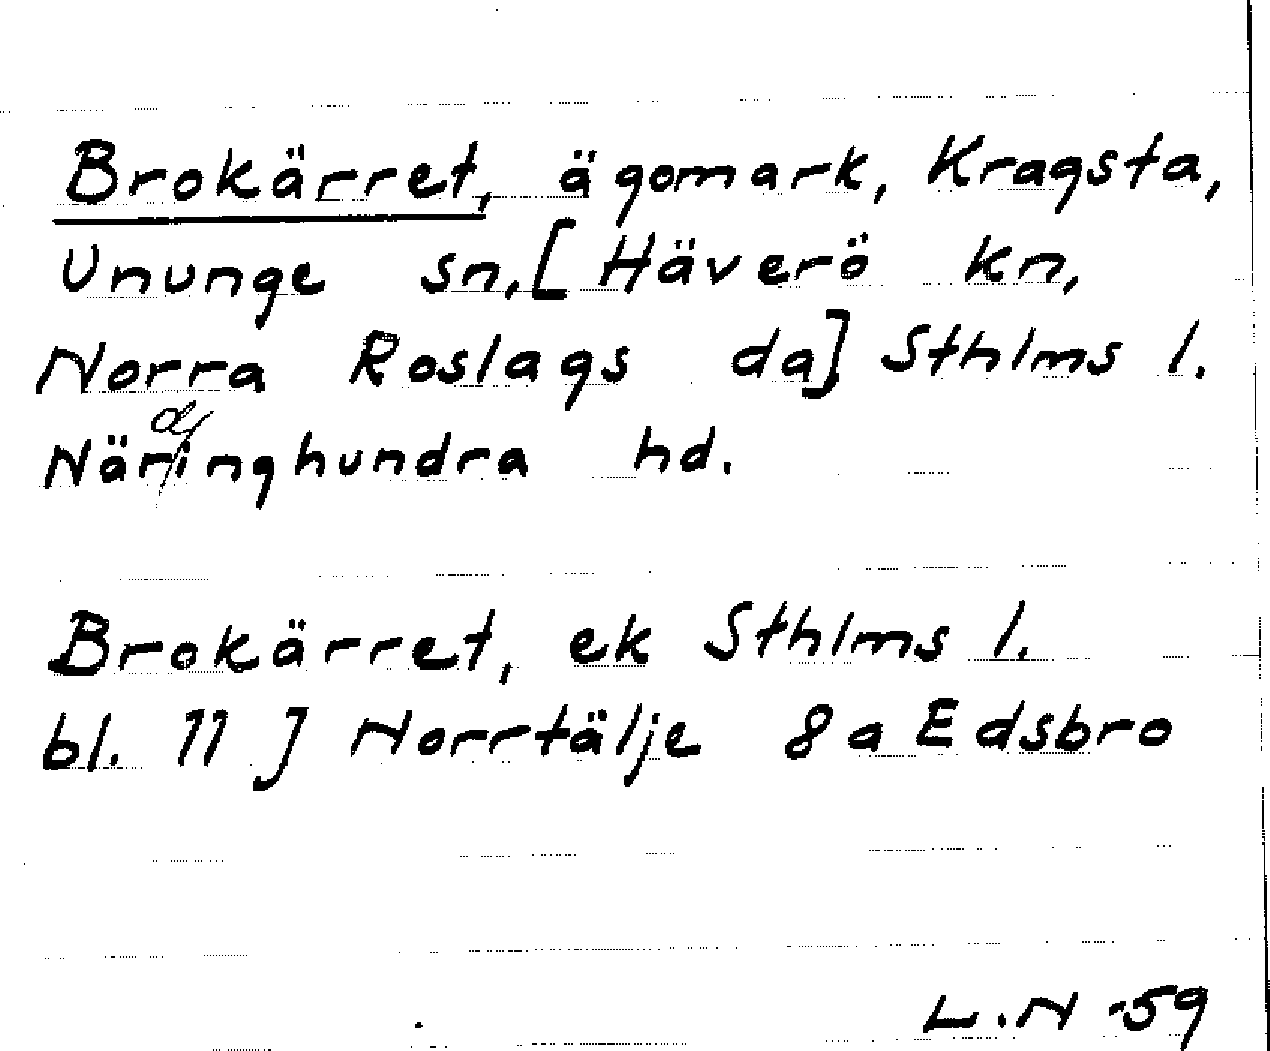 Brokärret, ägomark, Kragsta,
Ununge sn, [Häverö kn,
Norra Roslags da] Sthlms l.
Näringhundra hd.
Brokärret, ek Sthlms l.
bl. 11 J Norrtälje 8a Edsbro
L.N -59